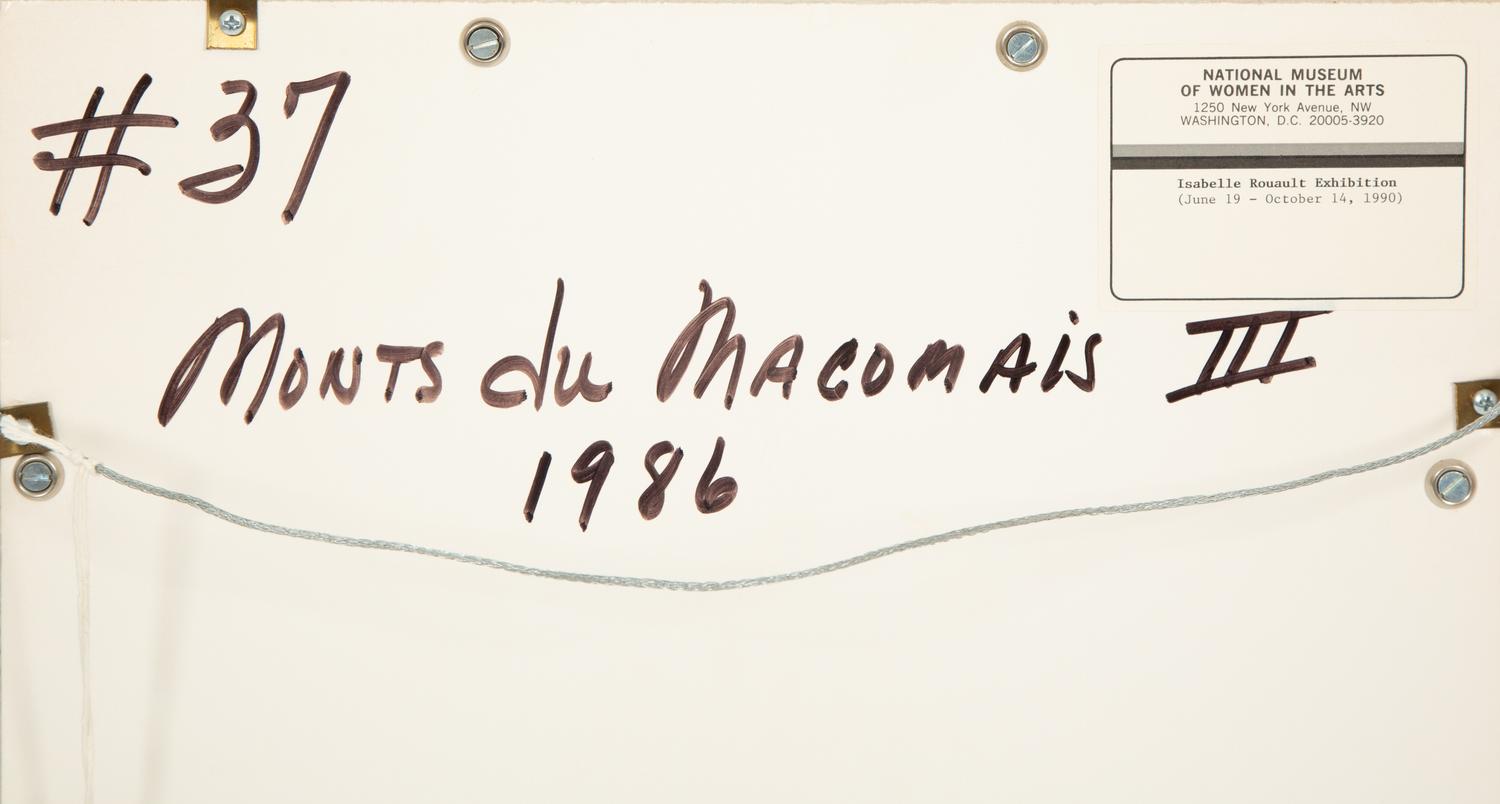 #37
NATIONAL MUSEUM
OF WOMEN IN THE ARTS
1250 New York Avenue, NW
WASHINGTON, D.C. 20005-3920
Isabelle Rouault Exhibition
(June 19 - October 14, 1990)
MONTS du MACOMAiS III
1986